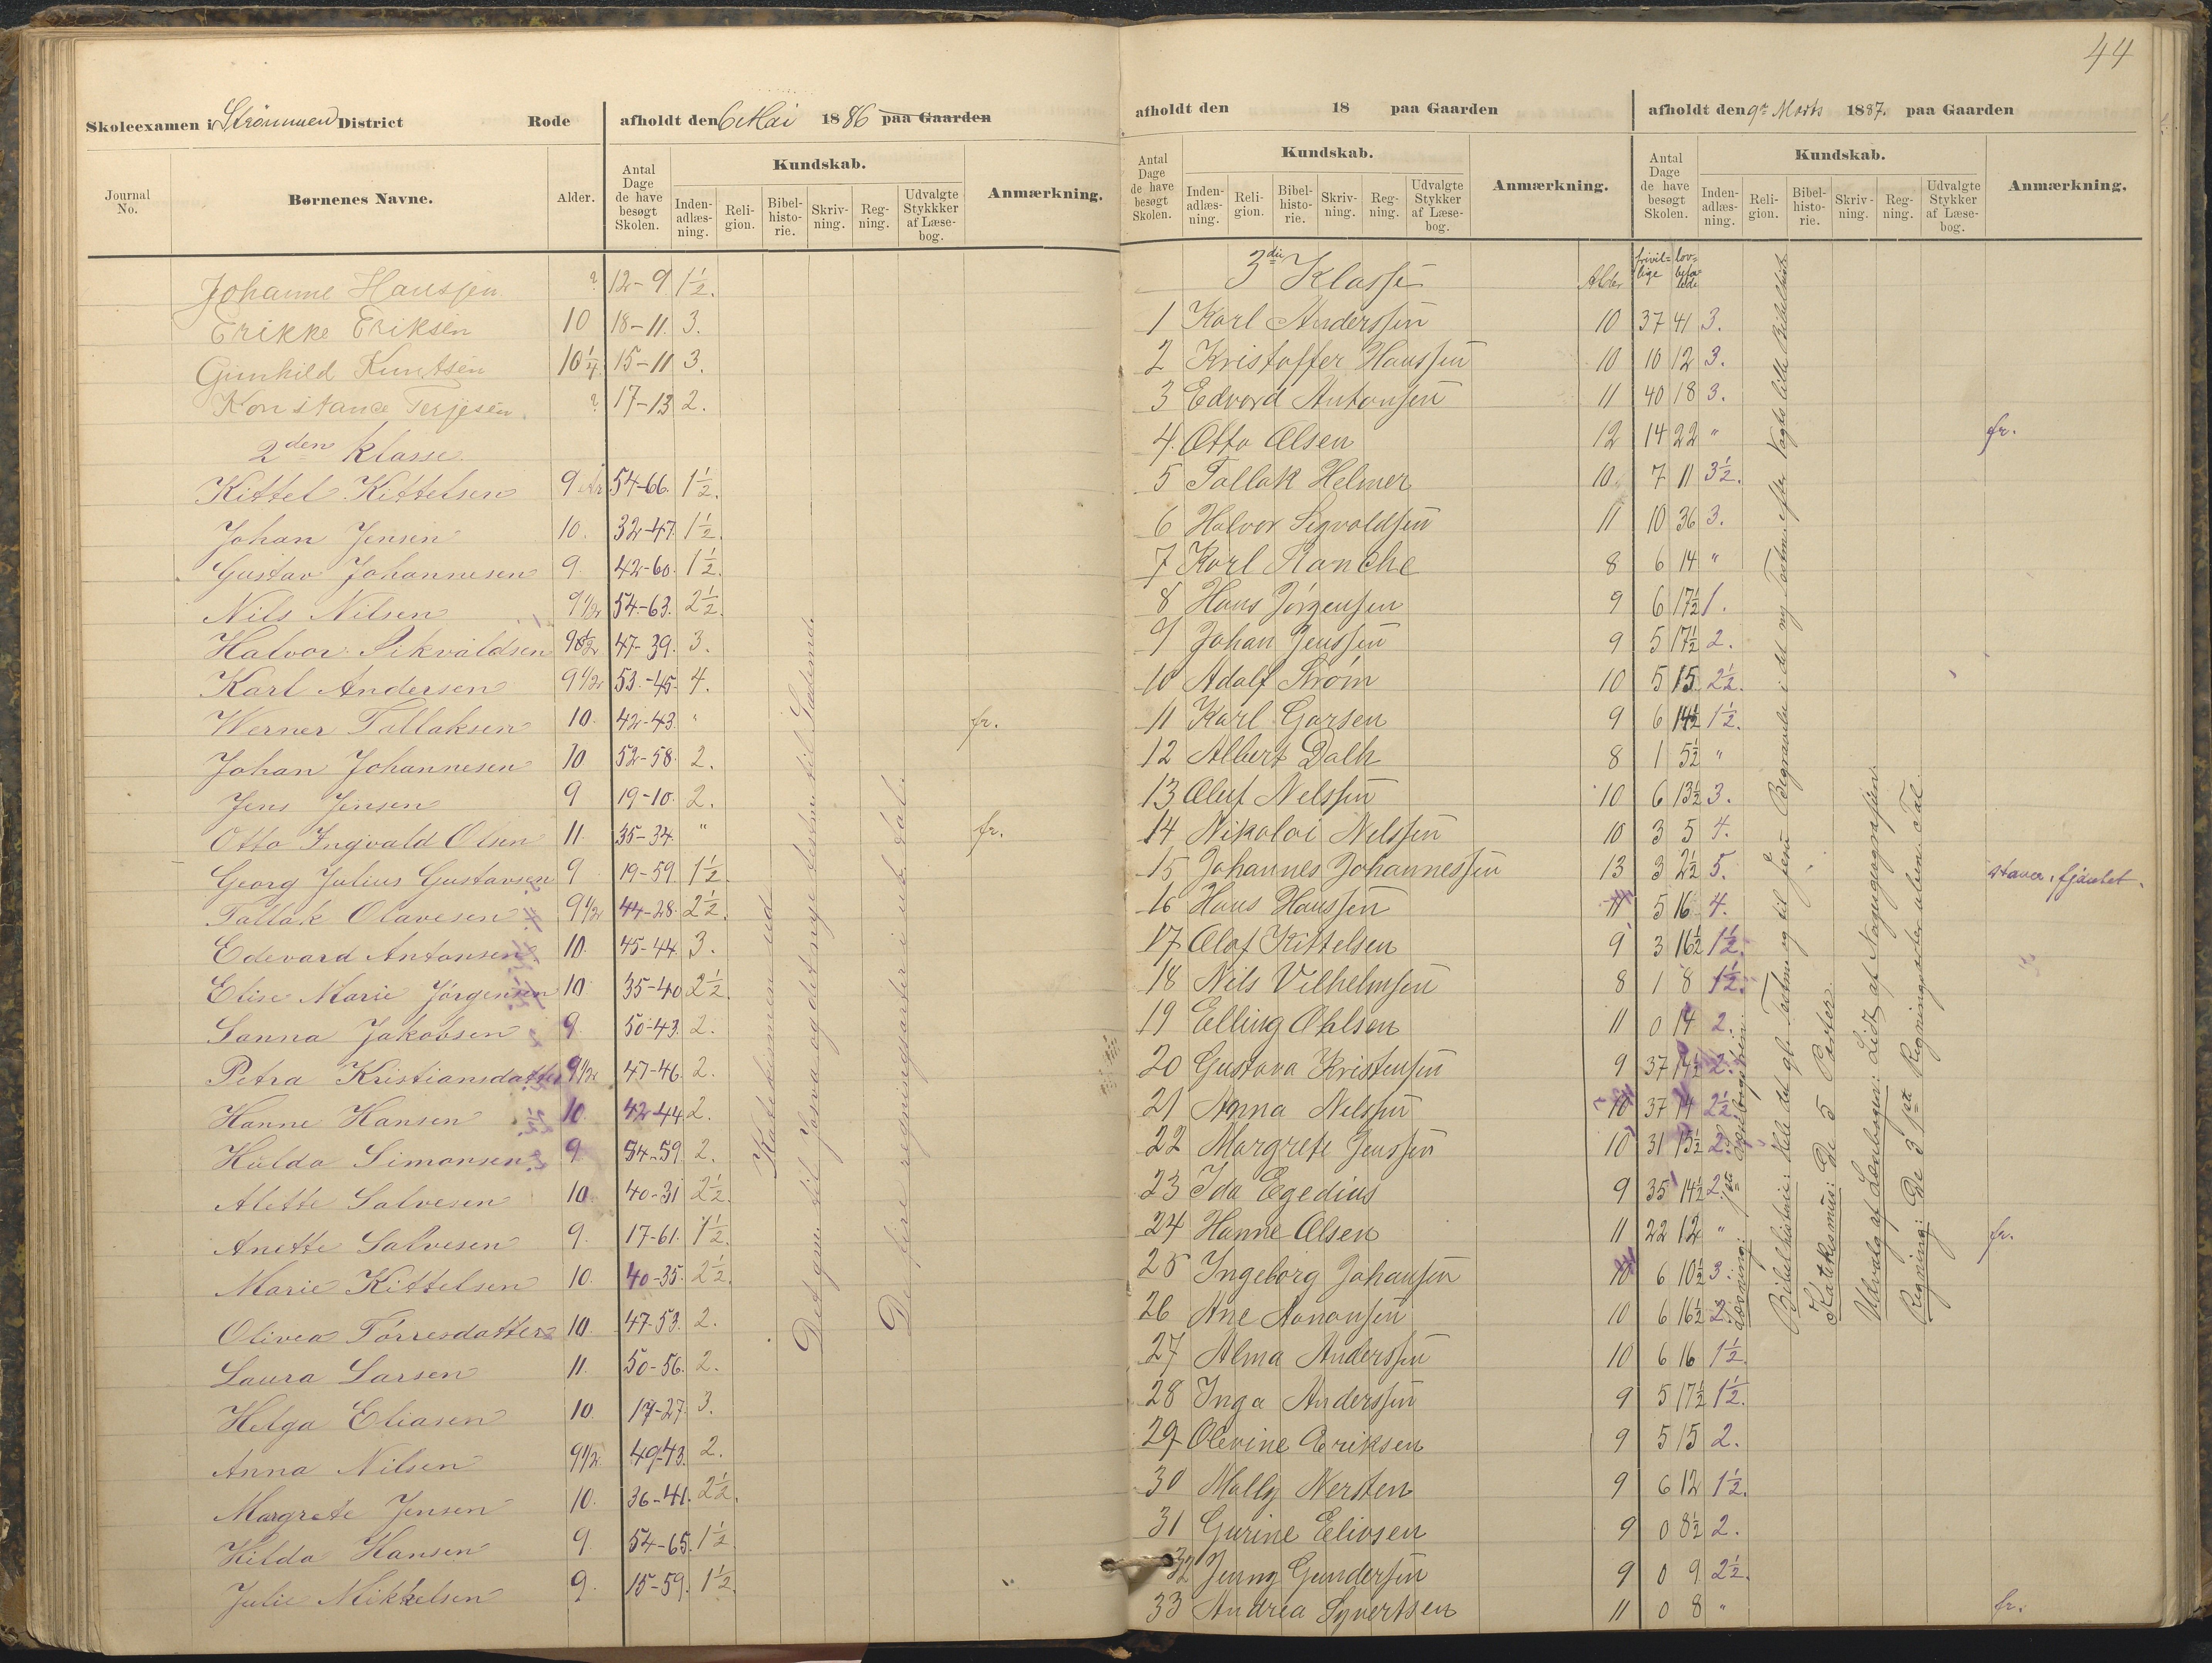 44
Skoleexamen i Strømmen District Rode
afholdt den 6 Mai 1886 paa Gaarden
Journal No. Børnenes Navne. Alder. Antal Dage de have besøgt Skolen. Kundskab. Anmærkning.
Inden-adlæs-ning. Reli-gion. Bibel-histo-rie. Skriv-ning. Reg-ning. Udvalgte Stykkker af Læse-bog.
Johanne Hanssen ? 12-9 1½.
Erikke Eriksen 10 18-11. 3.
Gunhild Knutsen 10¼ 15-11 3.
Konstance Terjesen. ? 17-13 2.
2den klasse.
Kittel Kittelsen 9 År 54-66. 1½.
Johan Jensen 10. 32-47. 1½.
Gustav Johannesen 9 42-60. 1½.
Nils Nilsen 9½ 54-63. 2½.
Halvor Sikvaldsen 47-39. 3.
Karl Andersen 9½ 53-45. 4.
Werner Tallaksen 10. 42-43. " fr.
Johan Johannesen 10 52-58. 2.
Jens Jensen 9 19-10. 2.
Otto Ingvald Olsen 11. 35-34. " fr.
Georg Julius Gustavsen 9 19-59. 1½
Tallak Olavesen 9½ 44-28. 2½.
Edevard Antonsen 10. 45-44. 3.
Elise Marie Jørgensen 10 35-40 2½.
Sanna Jakobsen 9. 50-43. 2.
Petra Kristiansdatter 9½ 47-46. 2.
Hanne Hansen 10. 42-44 2.
Hulda Simonsen 9 54-59. 2.
Alette Salvesen 10. 40-31 2½.
Anette Salvesen 9. 17-61. 1½.
Marie Kittelsen 10. 40-35. 2½.
Olivea Torresdatter 10. 47-53. 2.
Laura Larsen 11. 50-56. 2.
Helga Eliasen 10. 17-27. 3.
Anna Nilsen 9½ 49-43. 2.
Margrete Jensen 10. 36-41. 2½.
Hilda Hansen 9. 54-65. 1½
Julie Mikkelsen 9. 15-59. 1½.
Katekismen ud
Det gamle til Josva og det nye testam. til
De fire regningsarter i ub. tal.
afholdt den 18 paa Gaarden
afholdt den 9de Marts 1887. paa Gaarden
Antal Dage de have besøgt Skolen. Kundskab. Anmærkning.
Inden-adlæs-ning. Reli-gion. Bibel-histo-rie. Skriv-ning. Reg-ning. Udvalgte Stykker af Læse-bog.
Antal Dage de have besøgt Skolen. Kundskab. Anmærkning.
Inden-adlæs-ning. Reli-gion. Bibel-histo-rie. Skriv-ning. Reg-ning. Udvalgte Stykker af Læse-bog.
3die Klasse Alder frivil=lige lov=befa=lede
1 Karl Anderssen 10 37 41 3.
2 Kristoffer Hanssen 10 10 12 3.
3 Edvard Antonsen 11 40 18 3.
4. Otto Olsen 12 14 22 " fr.
5 Tallak Helmer 10. 7 11 3½.
6 Halvor Sigvaldsen 11 10 36 3.
7 Karl Ranche 8 6 14 "
8 Hans Jørgensen 9 6 17½ 1.
9 Johan Jenssen 9 5 17½ 2.
10 Adolf Strøm 10 5 15 2½.
11 Karl Garsen 9 6 14½ 1½.
12 Albert Dalh 8 1 5½ "
13 Oluf Nelssen 10 6 13½ 3.
14 Nikolai Nelssen 10 3 5 4.
15 Johannes Johannessen 13 3 2½ 5.
16 Hans Hanssen 11 5 16 4.
17 Olaf Kittelsen 9 3 16½ 1½.
18 Nils Vilhelmsen 8 1 8 1½.
19 Elling Ohlsen 11 0 14 2.
20 Gustava Kristensen 9 37 14½ 2.
21 Anna Nelssen 10 37 14 2½
22 Margrete Jenssen 10 31 15½ 2.
23 Ida Egedius 9 35 14½ 2.
24 Hanne Olsen 11 22 12 " fr.
25 Ingeborg Johansen 10 6 10½ 3.
26 Ane Aanonsen 10 6 16½ 2.
27 Alma Anderssen 10 6 16 1½.
28 Inga Anderssen 9 5 17½ 1½.
29 Olevine Eriksen 9 5 15 2.
30 Mally Nersten 9 6 12 1½.
31 Gurine Eliosen 9 0 8½ 2.
32 Jenny Gundersen 9 0 9 2½.
33 Andrea Syvertsen 11 0 8 " fr.
Læsning: 1ste
Bibelhistorie: Hele det gl. Testm. og til Jesu Begravelse i det ny Testm. efter Vogts lille Bibelhist.
Katekismus: De 5 Parter
Udvalg af Læsebogen: Lidt af Norgesgeografien.
Regning: De 3 1ste Regningsarter uben. Tal.